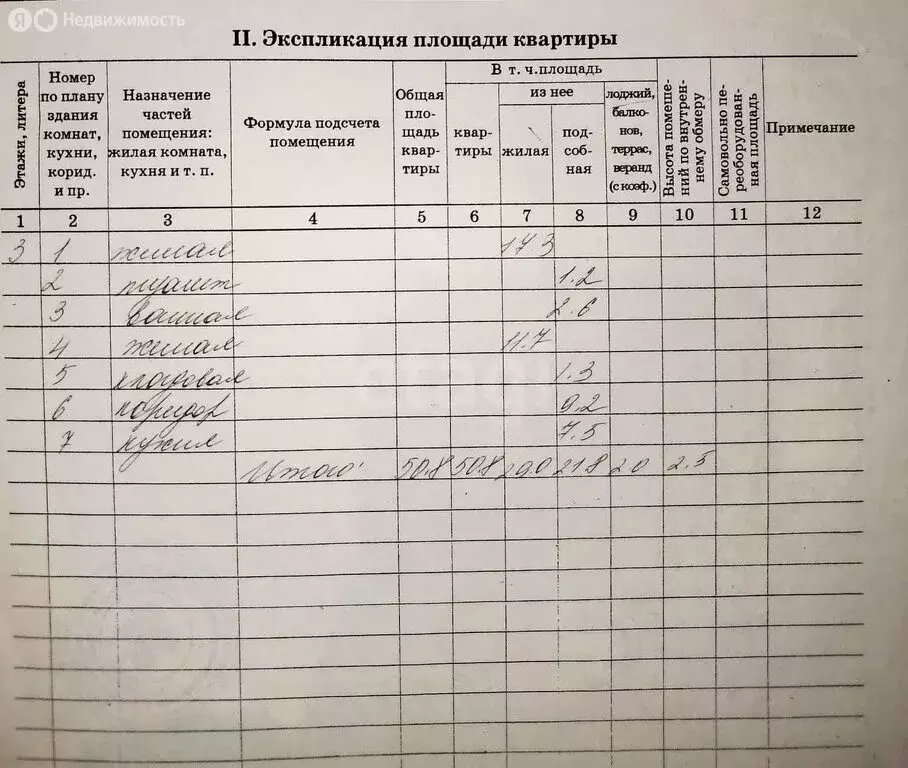 Я Недвижимость
II. Экспликация площади квартиры
Этажи, литера
Номер по плану здания комнат, кухни, корид. и пр.
Назначение частей помещения: жилая комната, кухня и т. п.
Формула подсчета помещения
Общая пло- щадь квар- тиры
В т. ч.площадь
квар- тиры
из нее
жилая
под- соб- ная
лоджий, балко- нов, террас, веранд (с коэф.)
Высота помеще- ний по внутрен- нему обмеру
Самовольно пе- реоборудован- ная площадь
Примечание
1 2 3 4 5 6 7 8 9 10 11 12
3 1 жилая 17.3
2 туалет 1.2
3 ванная 2.6
4 жилая 11.7
5 кладовая 1.3
6 коридор 9.2
7 кухня 7.5
Итого: 50.8 50.8 29.0 21.8 2.0 2.5